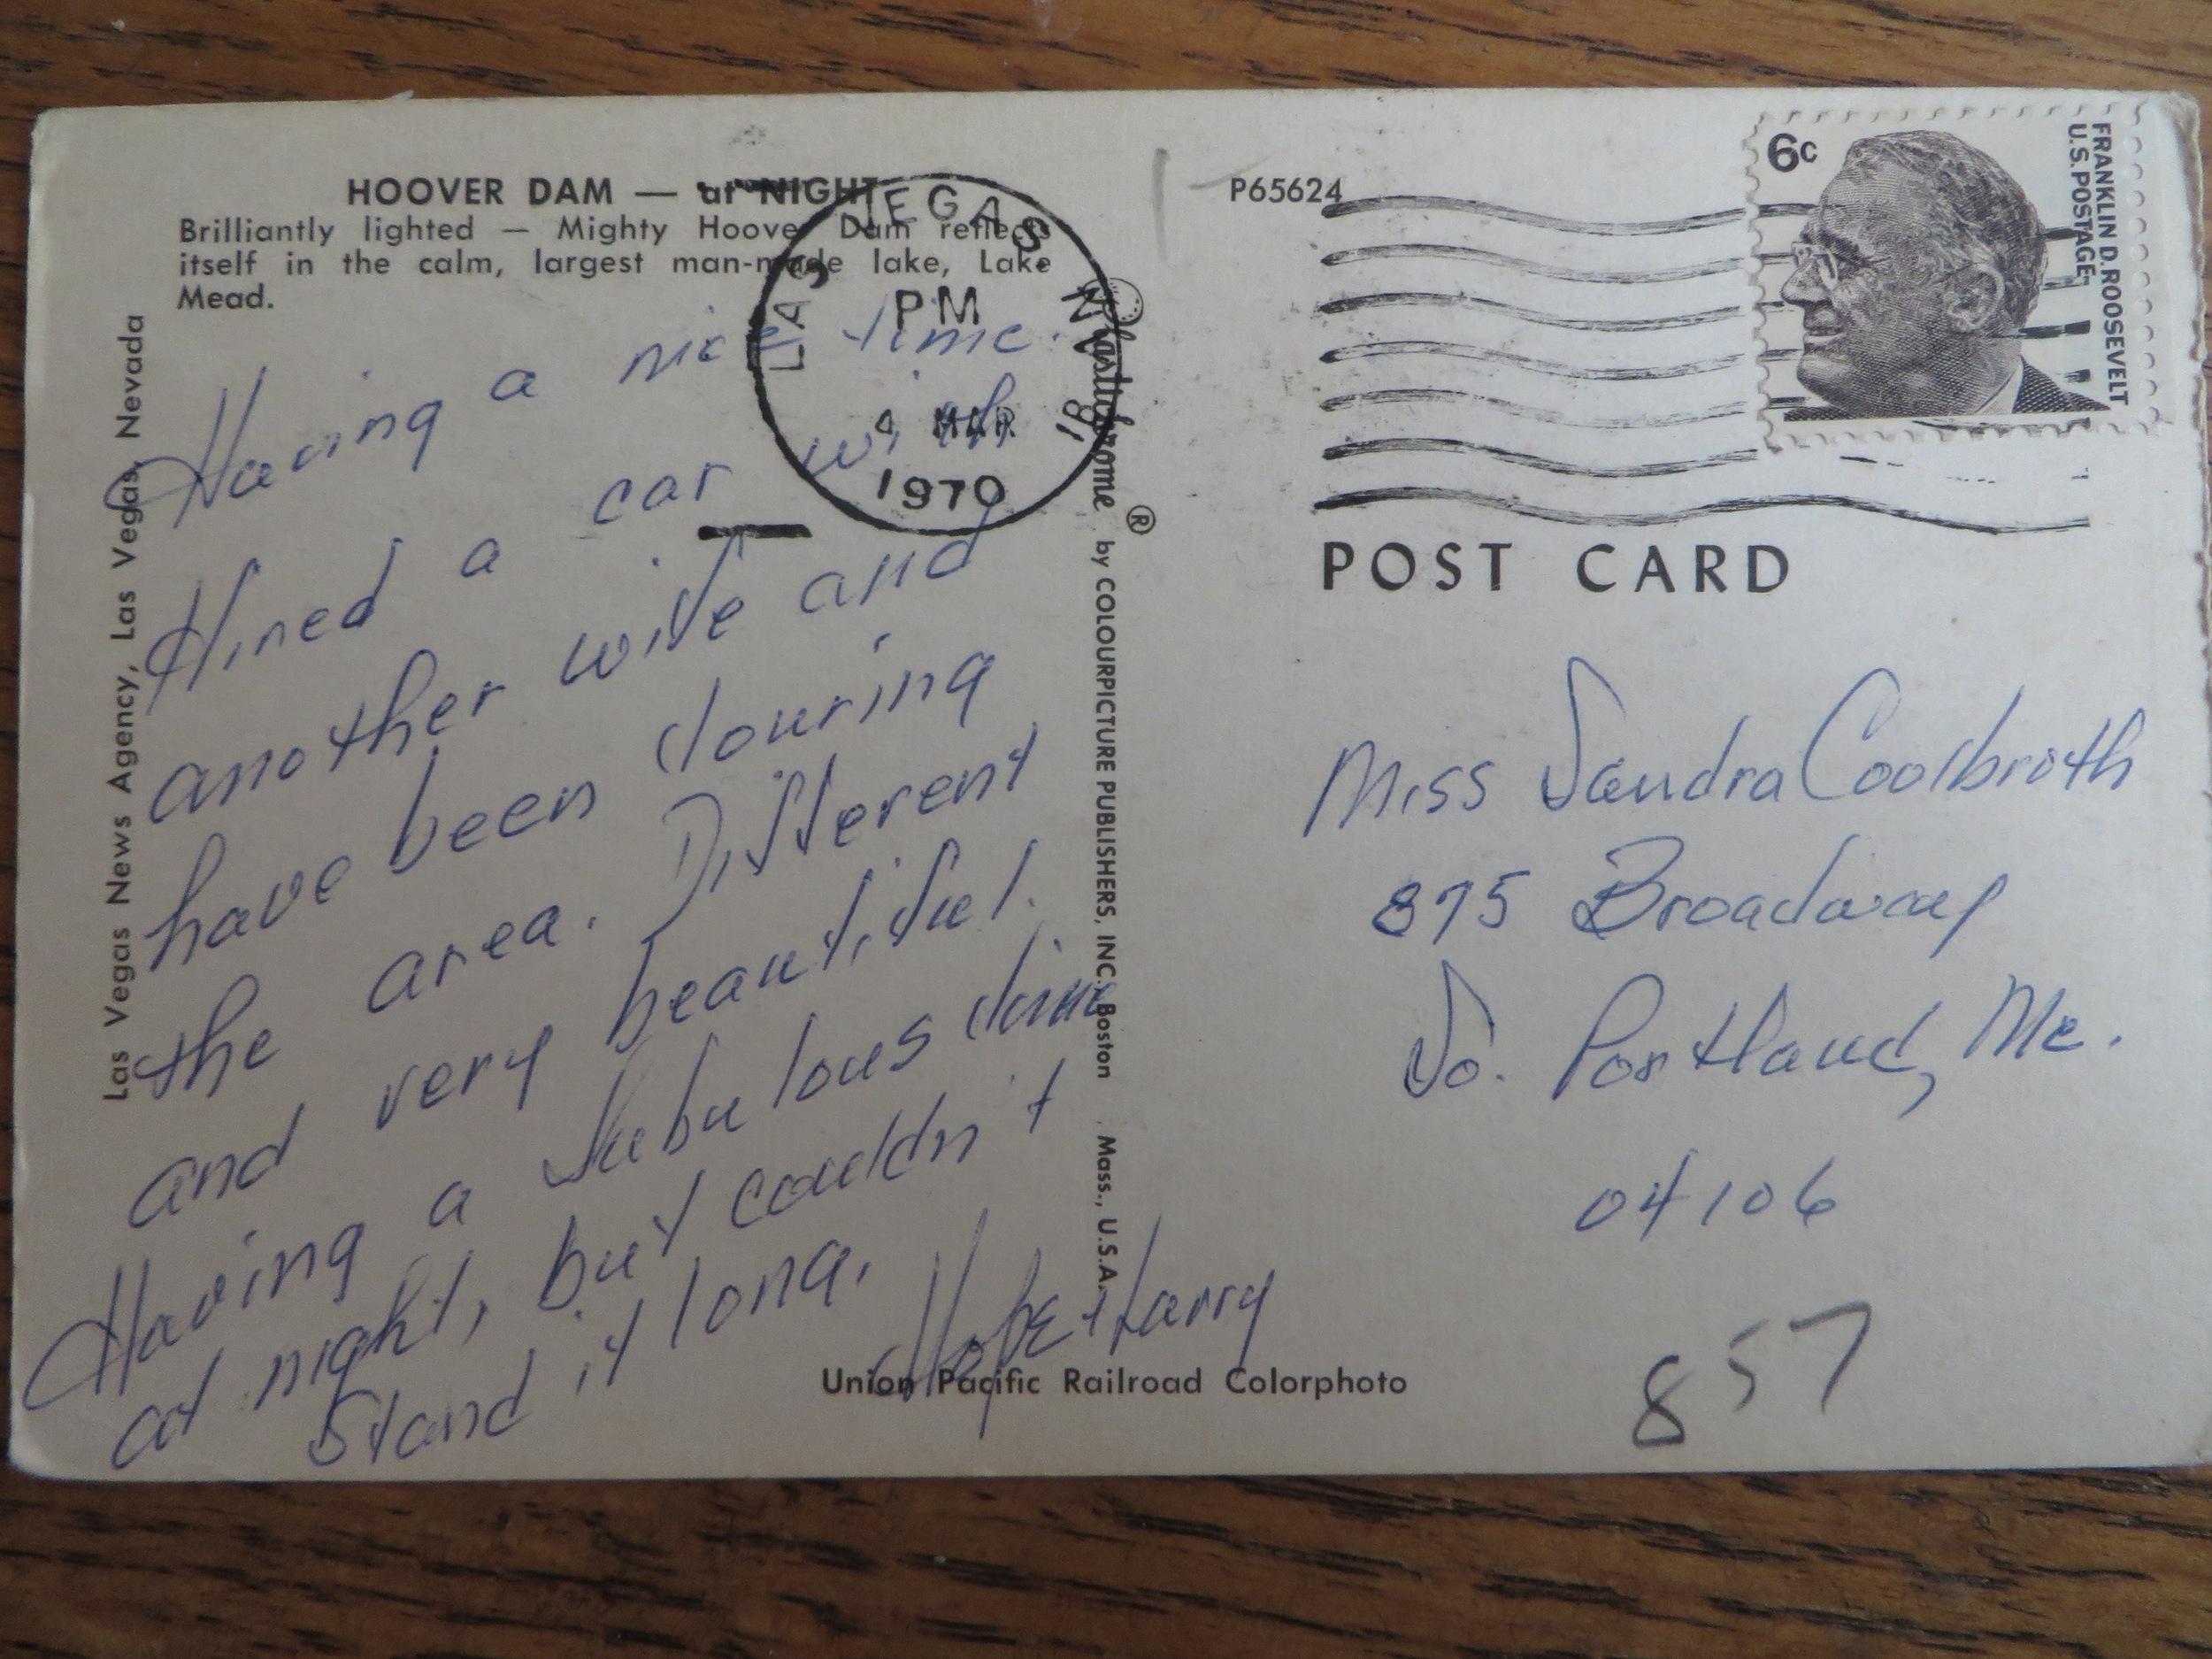 HOOVER DAM — at NIGHT
Brilliantly lighted — Mighty Hoover Dam reflects
itself in the calm, largest man-made lake, Lake
Mead.
Having a nice time.
Hired a car with
another wife and
have been touring
the area. Different
and very beautiful.
Having a fabulous time
at night, but couldn't
stand it long.
Hope + Harry
Las Vegas News Agency, Las Vegas, Nevada
LAS VEGAS
PM
4 MAR
1970
Plastichrome ® by COLOURPICTURE PUBLISHERS, INC., Boston Mass., U.S.A.
P65624
6c
FRANKLIN D. ROOSEVELT
U.S. POSTAGE
POST CARD
Miss Sandra Coolbroth
875 Broadway
So. Portland, Me.
04106
857
Union Pacific Railroad Colorphoto